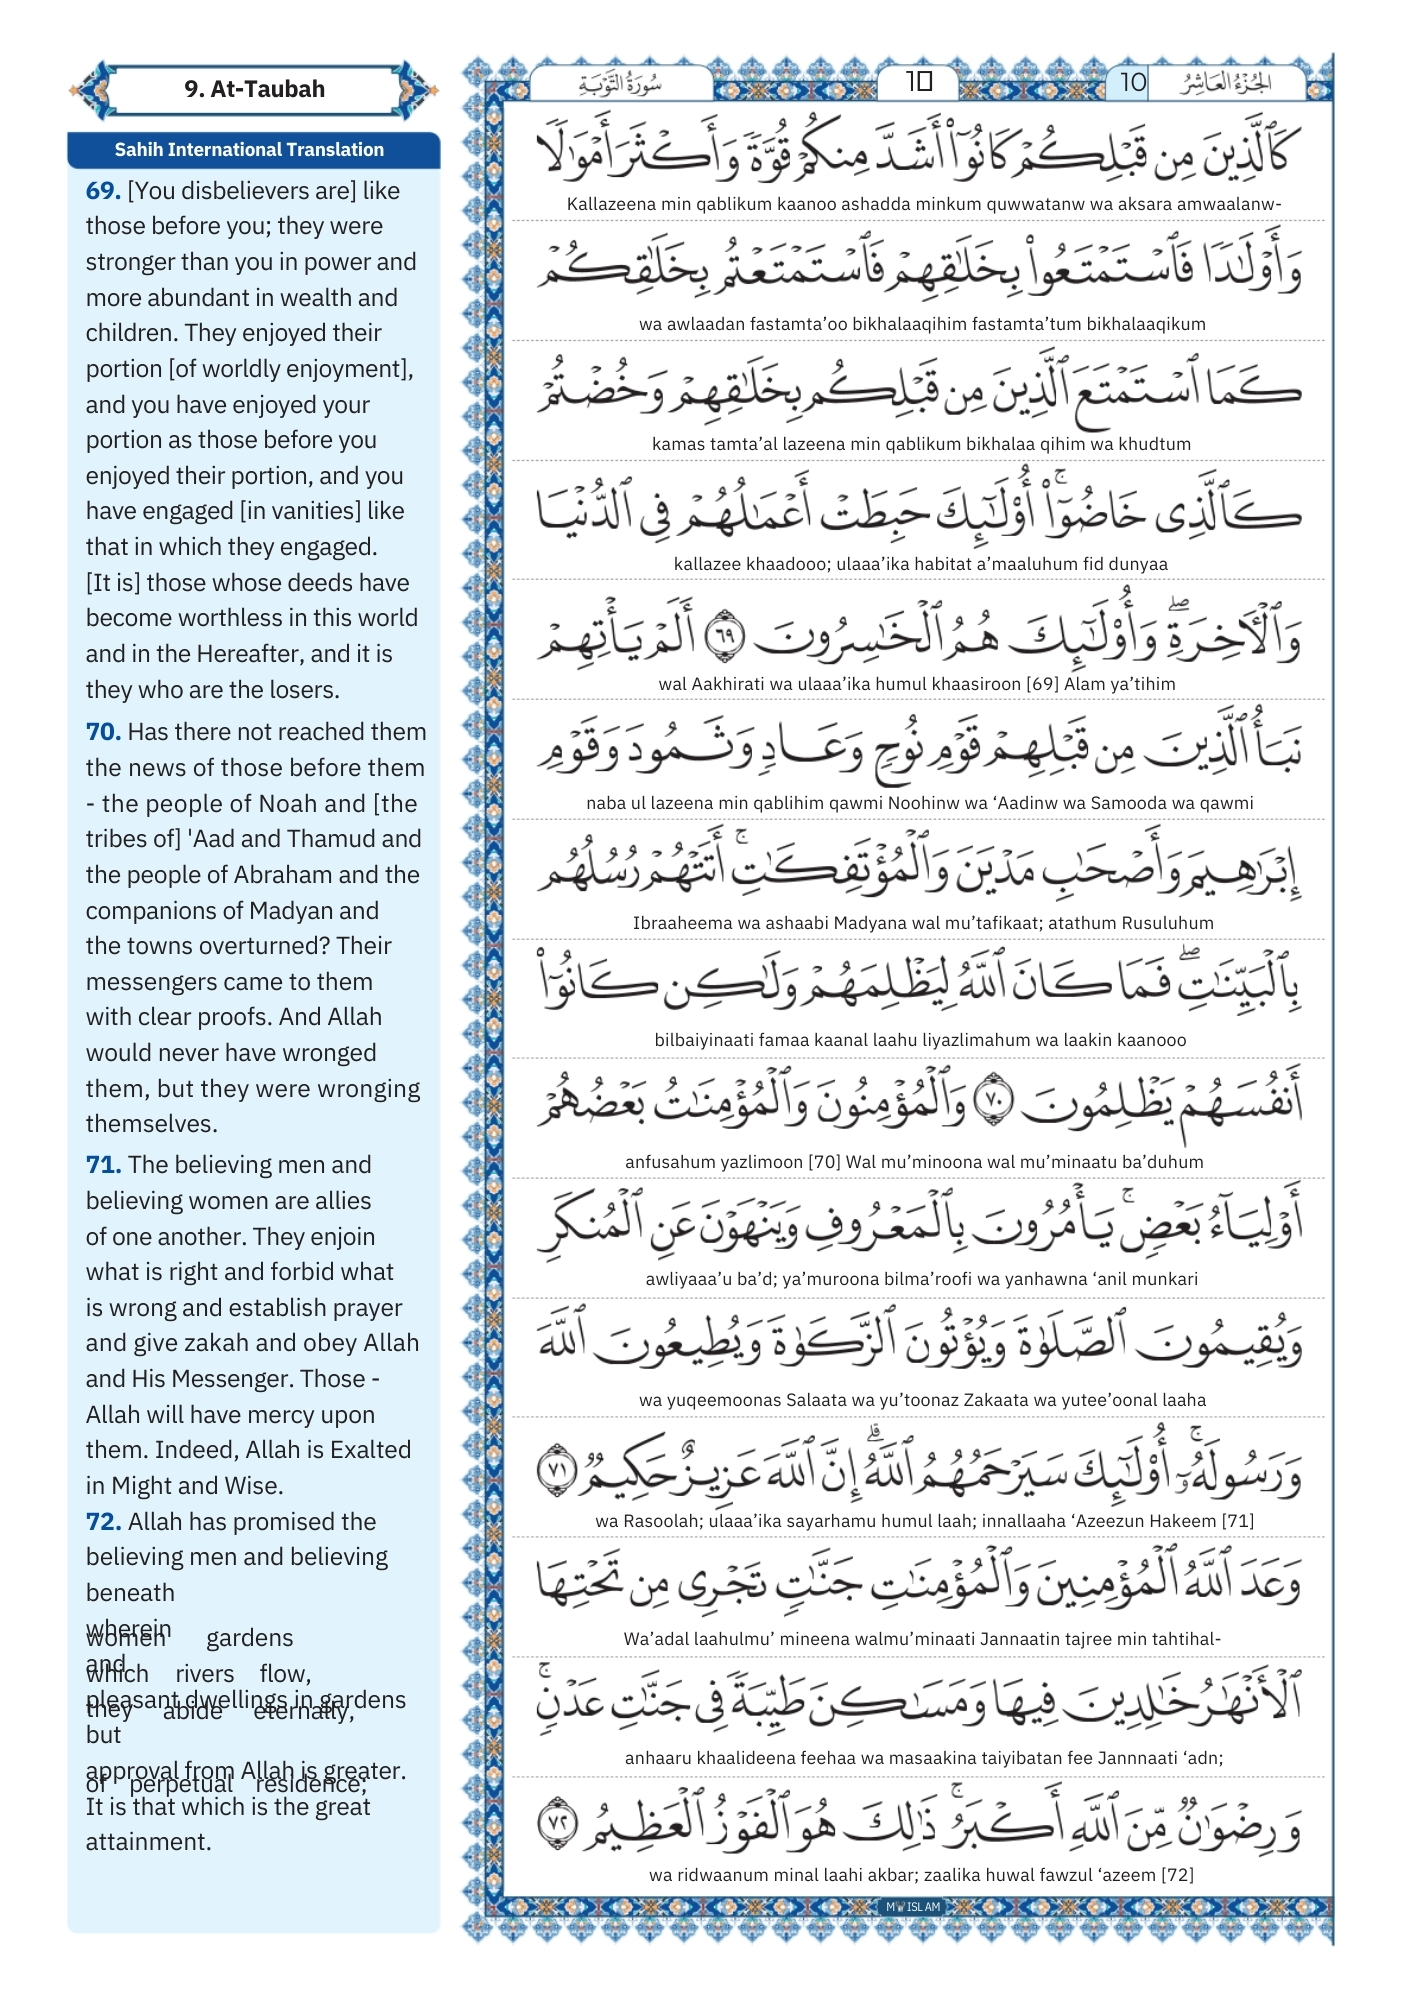 9. At-Taubah
Sahih International Translation
69. [You disbelievers are] like
those before you; they were
stronger than you in power and
more abundant in wealth and
children. They enjoyed their
portion [of worldly enjoyment],
and you have enjoyed your
portion as those before you
enjoyed their portion, and you
have engaged [in vanities] like
that in which they engaged.
[It is] those whose deeds have
become worthless in this world
and in the Hereafter, and it is
they who are the losers.
70. Has there not reached them
the news of those before them
- the people of Noah and [the
tribes of] 'Aad and Thamud and
the people of Abraham and the
companions of Madyan and
the towns overturned? Their
messengers came to them
with clear proofs. And Allah
would never have wronged
them, but they were wronging
themselves.
71. The believing men and
believing women are allies
of one another. They enjoin
what is right and forbid what
is wrong and establish prayer
and give zakah and obey Allah
and His Messenger. Those -
Allah will have mercy upon
them. Indeed, Allah is Exalted
in Might and Wise.
72. Allah has promised the
believing men and believing
beneath
wherein
women gardens
and
which rivers flow,
pleasant dwellings in gardens
they abide eternally,
but
approval from Allah is greater.
of perpetual residence;
It is that which is the great
attainment.
سُورَةُ التَّوْبَةِ
10
10
الجُزْءُ العَاشِرُ
كَٱلَّذِينَ مِن قَبْلِكُمْ كَانُوٓا۟ أَشَدَّ مِنكُمْ قُوَّةً وَأَكْثَرَ أَمْوَٰلًا
Kallazeena min qablikum kaanoo ashadda minkum quwwatanw wa aksara amwaalanw-
وَأَوْلَٰدًا فَٱسْتَمْتَعُوا۟ بِخَلَٰقِهِمْ فَٱسْتَمْتَعْتُم بِخَلَٰقِكُمْ
wa awlaadan fastamta’oo bikhalaaqihim fastamta’tum bikhalaaqikum
كَمَا ٱسْتَمْتَعَ ٱلَّذِينَ مِن قَبْلِكُم بِخَلَٰقِهِمْ وَخُضْتُمْ
kamas tamta’al lazeena min qablikum bikhalaa qihim wa khudtum
كَٱلَّذِى خَاضُوٓا۟ ۚ أُو۟لَٰٓئِكَ حَبِطَتْ أَعْمَٰلُهُمْ فِى ٱلدُّنْيَا
kallazee khaadooo; ulaaa’ika habitat a’maaluhum fid dunyaa
وَٱلْءَاخِرَةِ ۖ وَأُو۟لَٰٓئِكَ هُمُ ٱلْخَٰسِرُونَ ٦٩ أَلَمْ يَأْتِهِمْ
wal Aakhirati wa ulaaa’ika humul khaasiroon [69] Alam ya’tihim
نَبَأُ ٱلَّذِينَ مِن قَبْلِهِمْ قَوْمِ نُوحٍ وَعَادٍ وَثَمُودَ وَقَوْمِ
naba ul lazeena min qablihim qawmi Noohinw wa ‘Aadinw wa Samooda wa qawmi
إِبْرَٰهِيمَ وَأَصْحَٰبِ مَدْيَنَ وَٱلْمُؤْتَفِكَٰتِ ۚ أَتَتْهُمْ رُسُلُهُم
Ibraaheema wa ashaabi Madyana wal mu’tafikaat; atathum Rusuluhum
بِٱلْبَيِّنَٰتِ ۖ فَمَا كَانَ ٱللَّهُ لِيَظْلِمَهُمْ وَلَٰكِن كَانُوٓا۟
bilbaiyinaati famaa kaanal laahu liyazlimahum wa laakin kaanooo
أَنفُسَهُمْ يَظْلِمُونَ ٧٠ وَٱلْمُؤْمِنُونَ وَٱلْمُؤْمِنَٰتُ بَعْضُهُمْ
anfusahum yazlimoon [70] Wal mu’minoona wal mu’minaatu ba’duhum
أَوْلِيَآءُ بَعْضٍ ۚ يَأْمُرُونَ بِٱلْمَعْرُوفِ وَيَنْهَوْنَ عَنِ ٱلْمُنكَرِ
awliyaaa’u ba’d; ya’muroona bilma’roofi wa yanhawna ‘anil munkari
وَيُقِيمُونَ ٱلصَّلَوٰةَ وَيُؤْتُونَ ٱلزَّكَوٰةَ وَيُطِيعُونَ ٱللَّهَ
wa yuqeemoonas Salaata wa yu’toonaz Zakaata wa yutee’oonal laaha
وَرَسُولَهُۥٓ ۚ أُو۟لَٰٓئِكَ سَيَرْحَمُهُمُ ٱللَّهُ ۗ إِنَّ ٱللَّهَ عَزِيزٌ حَكِيمٌ ٧١
wa Rasoolah; ulaaa’ika sayarhamu humul laah; innallaaha ‘Azeezun Hakeem [71]
وَعَدَ ٱللَّهُ ٱلْمُؤْمِنِينَ وَٱلْمُؤْمِنَٰتِ جَنَّٰتٍ تَجْرِى مِن تَحْتِهَا
Wa’adal laahulmu’ mineena walmu’minaati Jannaatin tajree min tahtihal-
ٱلْأَنْهَٰرُ خَٰلِدِينَ فِيهَا وَمَسَٰكِنَ طَيِّبَةً فِى جَنَّٰتِ عَدْنٍ ۚ
anhaaru khaalideena feehaa wa masaakina taiyibatan fee Jannnaati ‘adn;
وَرِضْوَٰنٌ مِّنَ ٱللَّهِ أَكْبَرُ ۚ ذَٰلِكَ هُوَ ٱلْفَوْزُ ٱلْعَظِيمُ ٧٢
wa ridwaanum minal laahi akbar; zaalika huwal fawzul ‘azeem [72]